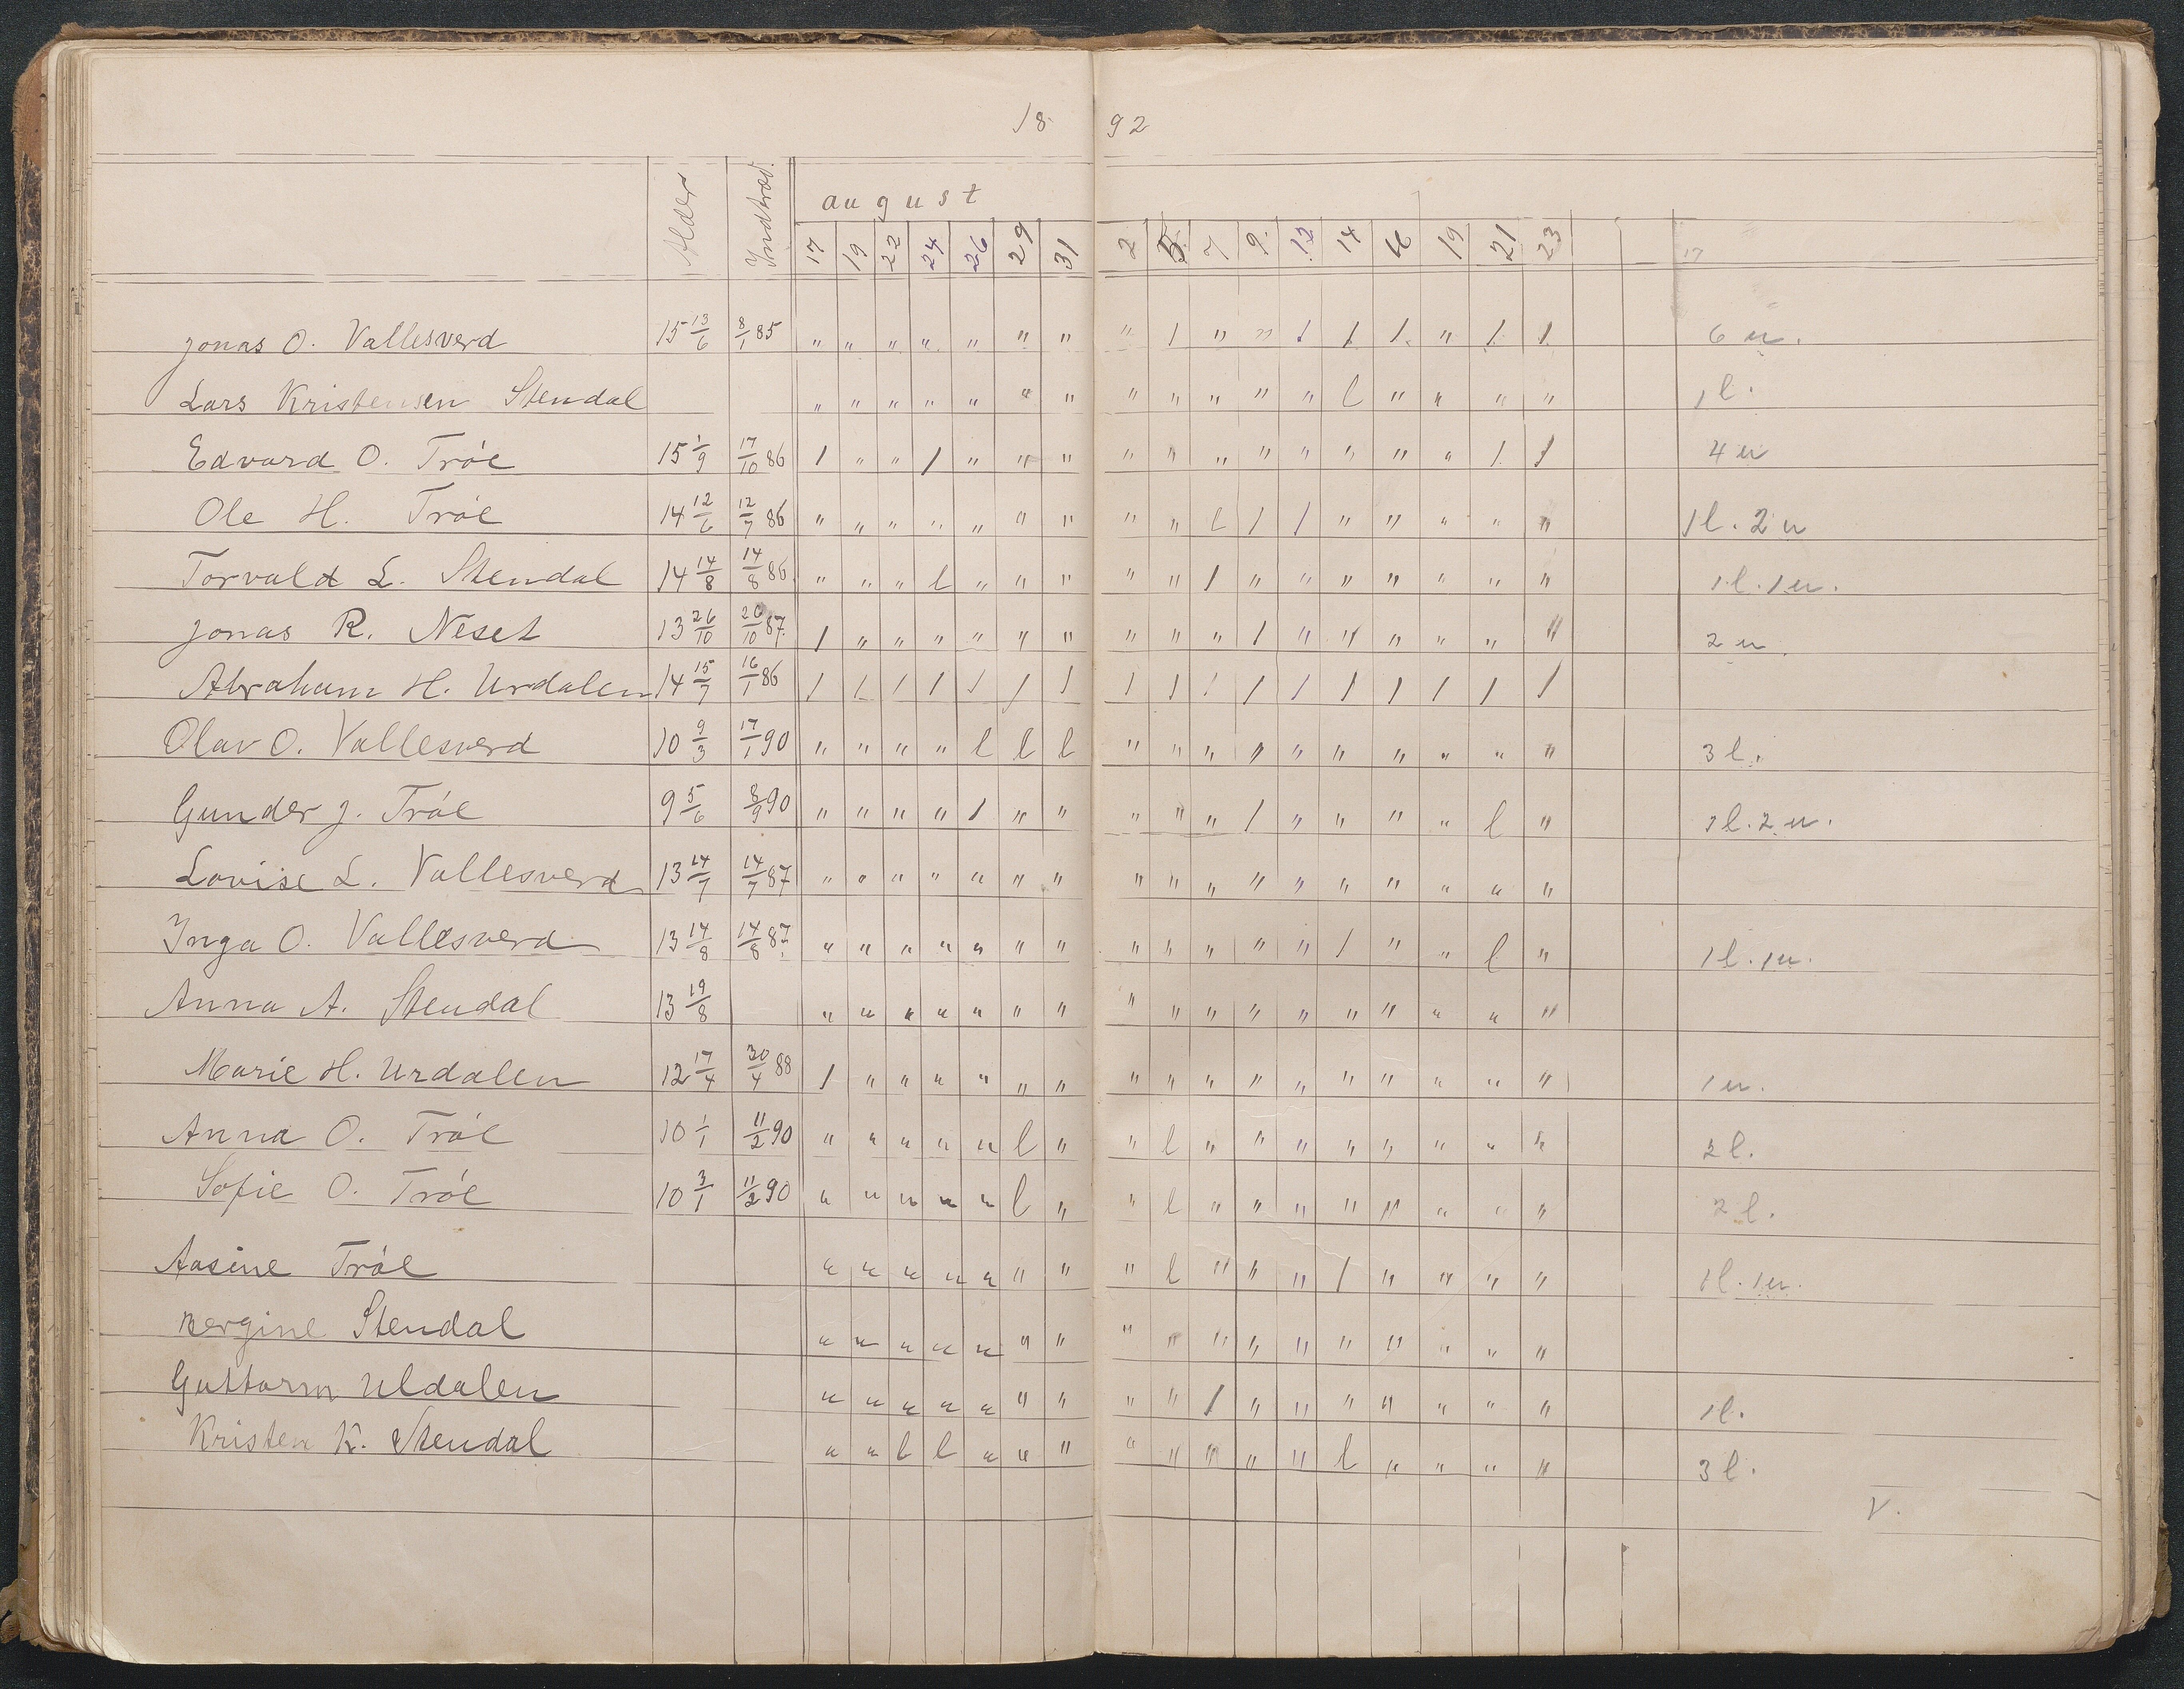 18 92
Alder Indtræd. august
17 19 22 24 26 29 31 2 5 7 9 12 14 16 19 21 23 17
Jonas O. Vallesverd 15 13/6 8/1 85 " " " " " " " " 1 " " 1 1 1 " 1 1 6 u.
Lars Kristensen Stendal " " " " " " " " " " " " l " " " " 1 l.
Edvard O. Tröe 15 1/9 17/10 86 1 " " 1 " " " " " " " " " " " 1 1 4 u
Ole H. Tröe 14 12/6 12/7 86 " " " " " " " " " l 1 1 " " " " " 1 l. 2 u
Torvald L. Stendal 14 14/8 14/8 86 " " " l " " " " " 1 " " " " " " " 1 l. 1 u.
Jonas R. Neset 13 26/10 20/10 87 1 " " " " " " " " " 1 " " " " " " 2 u.
Abraham H. Urdalen 14 15/7 16/1 86 1 1 1 1 1 1 1 1 1 1 1 1 1 1 1 1 1
Olav O. Vallesverd 10 9/3 17/1 90 " " " " l l l " " " " " " " " " " 3 l.
Gunder J. Tröe 9 5/6 8/9 90 " " " " 1 " " " " " 1 " " " " l " 1 l. 2 u.
Lovise L. Vallesverd 13 14/7 14/7 87 " " " " " " " " " " " " " " " " "
Inga O. Vallesverd 13 14/8 14/8 87. " " " " " " " " " " " " 1 " " l " 1 l. 1 u.
Anna A. Stendal 13 19/8 " " " " " " " " " " " " " " " " "
Marie H. Urdalen 12 17/4 30/4 88 1 " " " " " " " " " " " " " " " " 1 u.
Anna O. Tröe 10 1/1 11/2 90 " " " " " l " " l " " " " " " " " 2 l.
Sofie O. Tröe 10 3/1 11/2 90 " " " " " l " " l " " " " " " " " 2 l.
Aasine Tröe " " " " " " " " l " " " 1 " " " " 1 l. 1 u.
Bergine Stendal " " " " " " " " " " " " " " " " "
Guttorm Uldalen " " " " " " " " " 1 " " " " " " " 1 l.
Kristen K. Stendal " " l l " " " " " " " " l " " " " 3 l.
V.